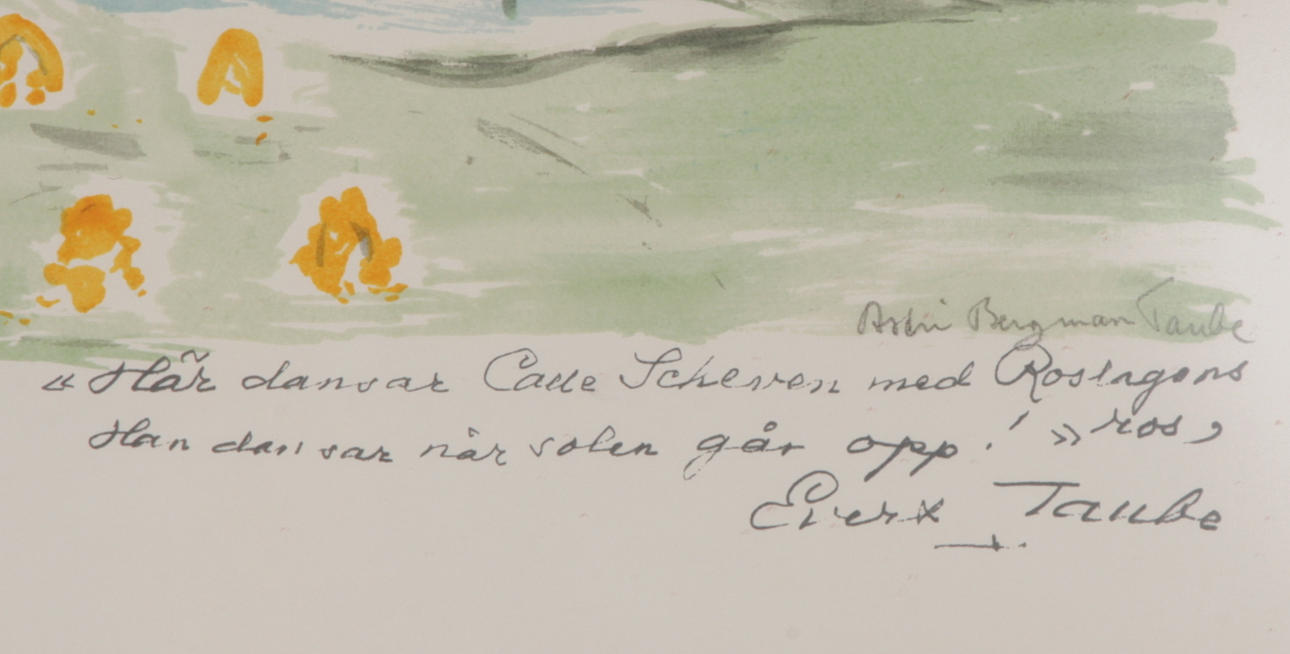 Astri Bergman Taube
«Här dansar Calle Scheven med Roslagens
ros,
Han dansar när solen går opp!»
Evert Taube